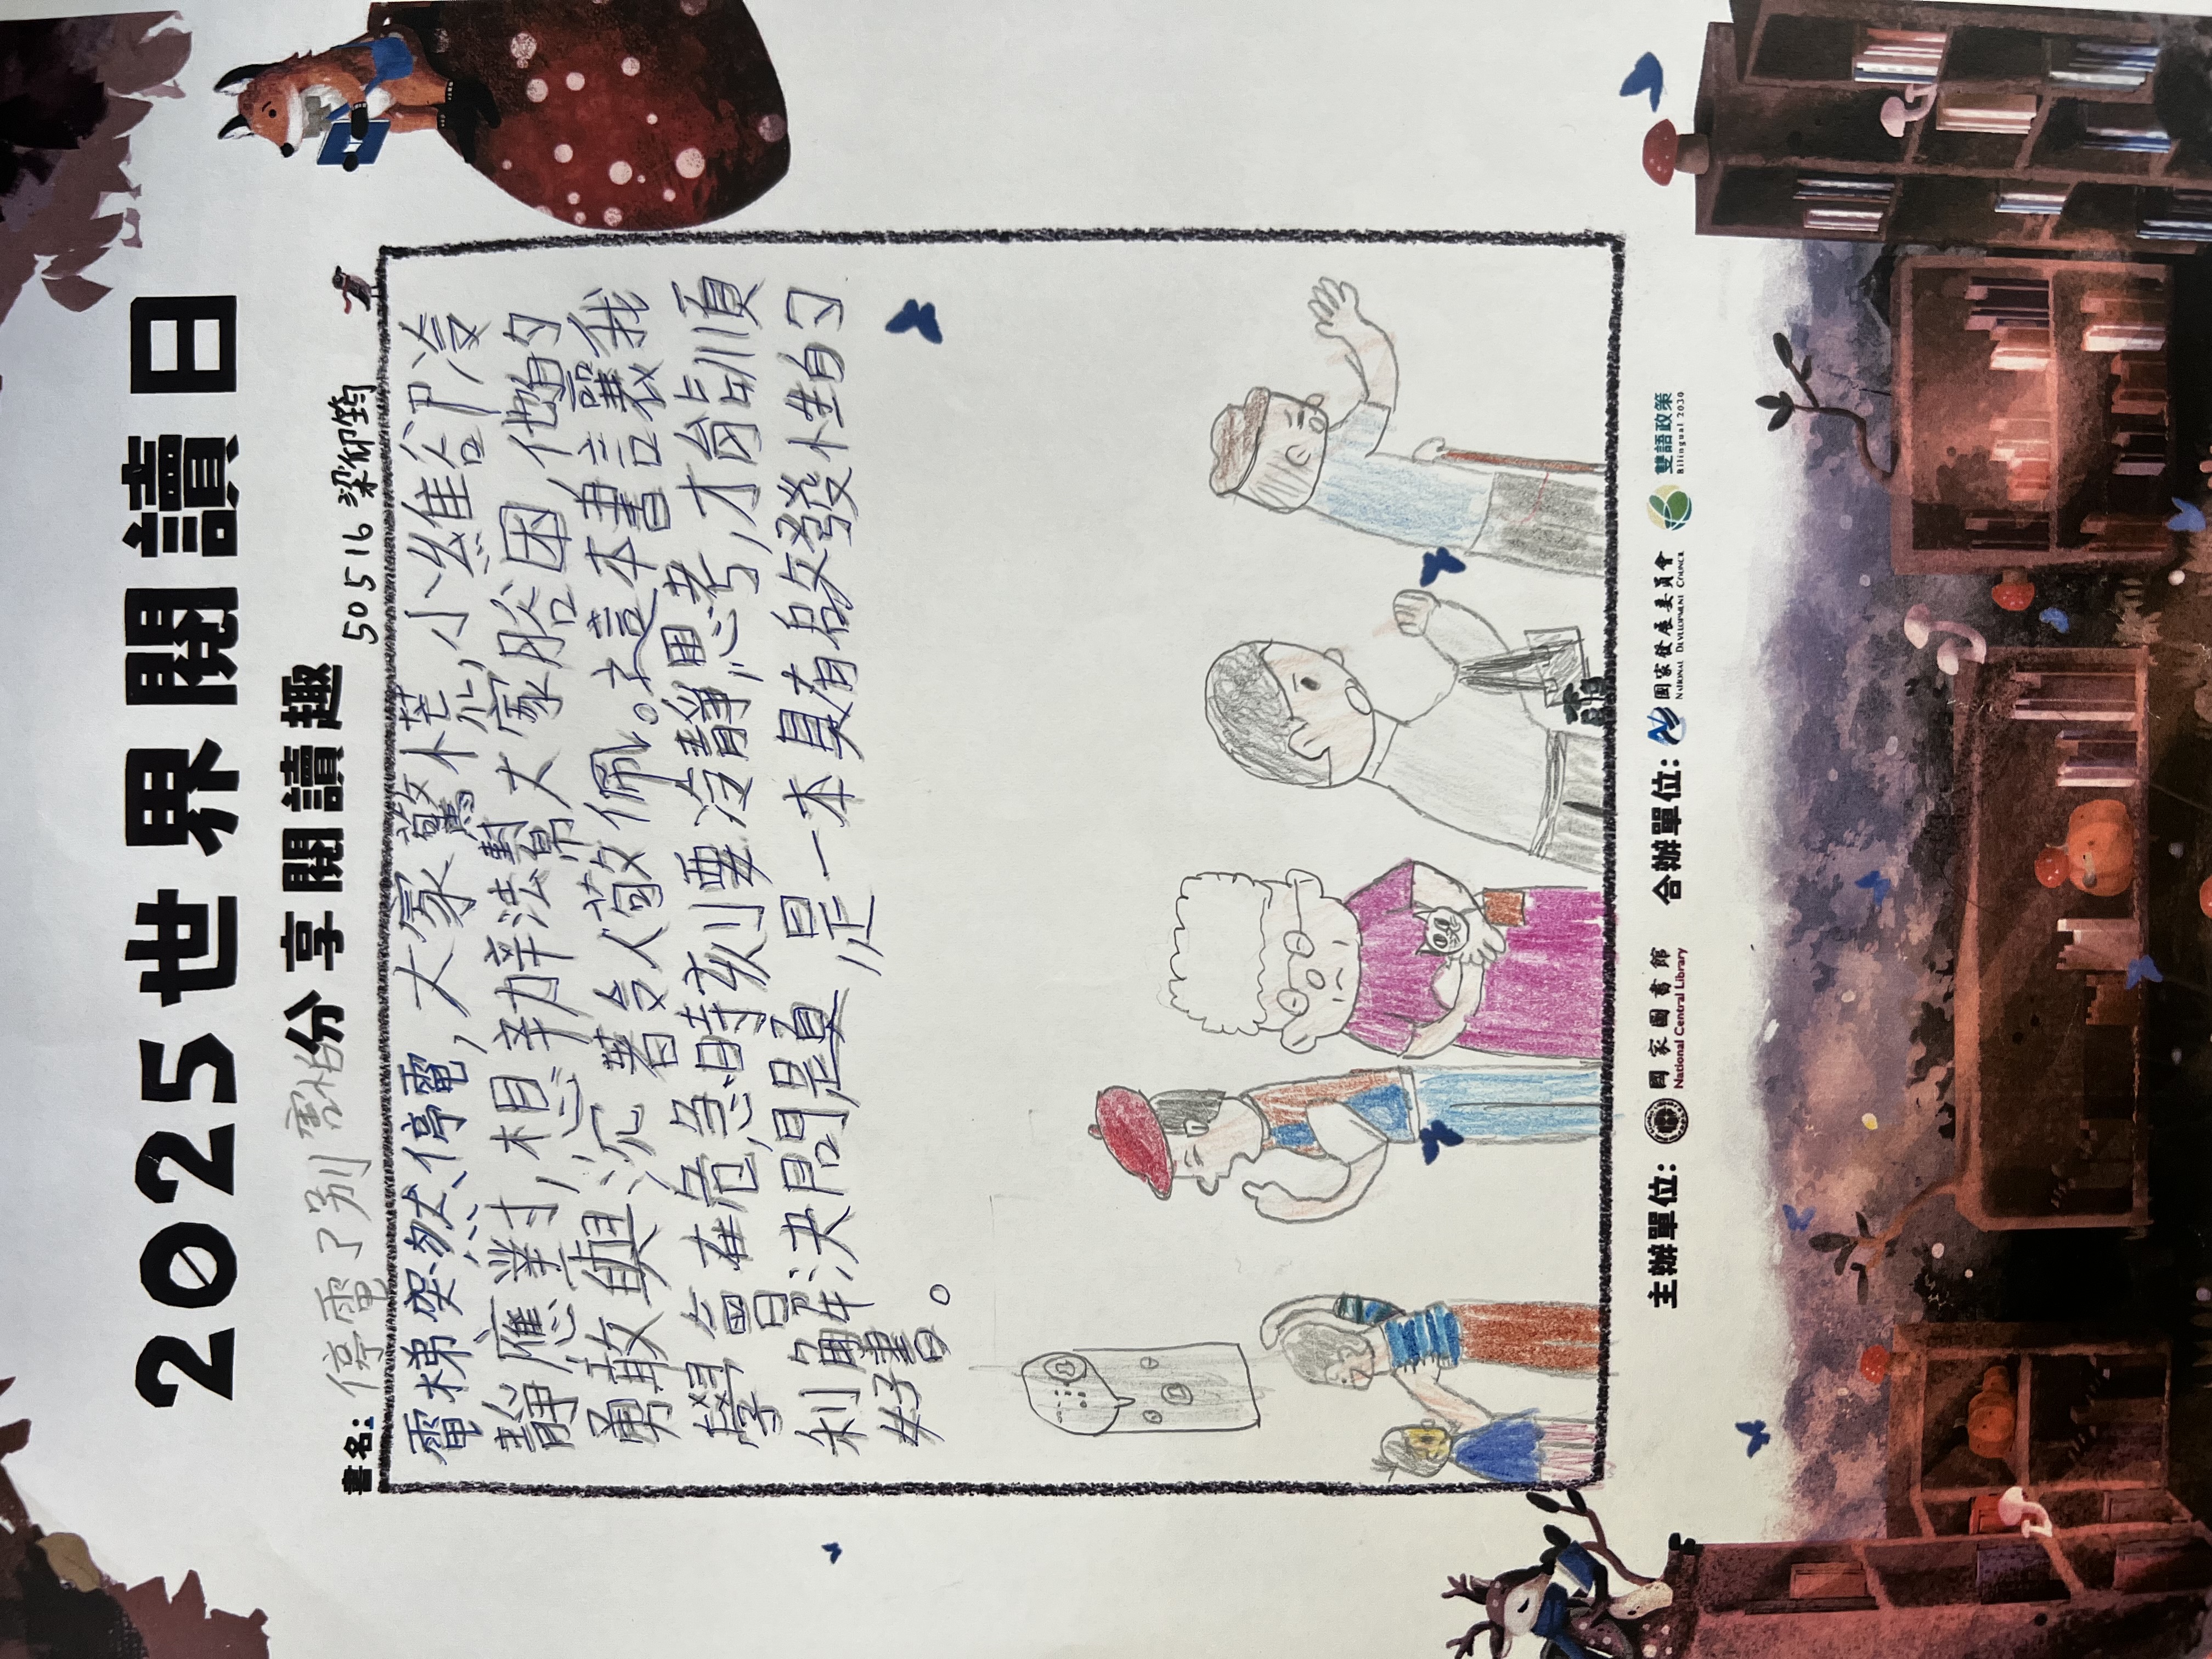 2025世界閱讀日
分享閱讀趣
書名: 停電了別害怕 50516 梁仰筠
電梯突然停電,大家驚慌,小維卻冷
靜應對,想辦法幫大家脫困,他的
勇敢與沉著令人敬佩。這本書讓我
學會在危急時刻要冷靜思考,才能順
利解決問題,真是一本具有啟發性的
好書。
主辦單位: 國家圖書館 National Central Library 合辦單位: 國家發展委員會 NATIONAL DEVELOPMENT COUNCIL 雙語政策 Bilingual 2030